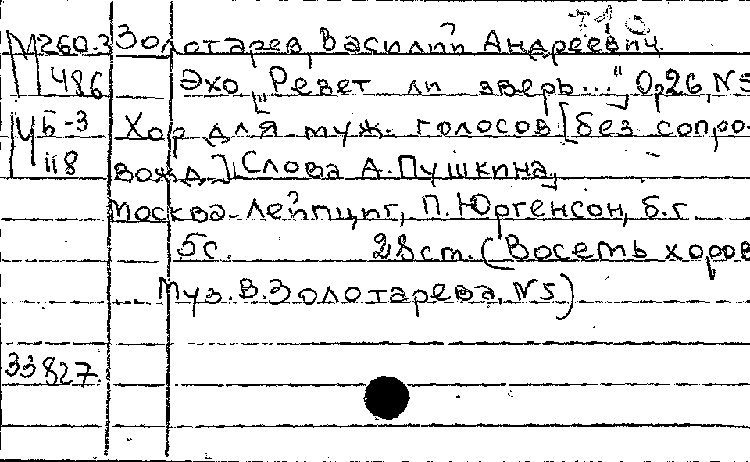 М260-3 Золотарев, Василий Андреевич.
486 Эхо „Ревет ли зверь...", Op.26, N5
М Б-3 Хор для муж. голосов [без сопро-
118 вожд.]. Слова А.Пушкина,
Москва-Лейпциг, П. Юргенсон, б.г.
5с. 28ст. (Восемь хоров
Муз. В.Золотарева, N5)
33827